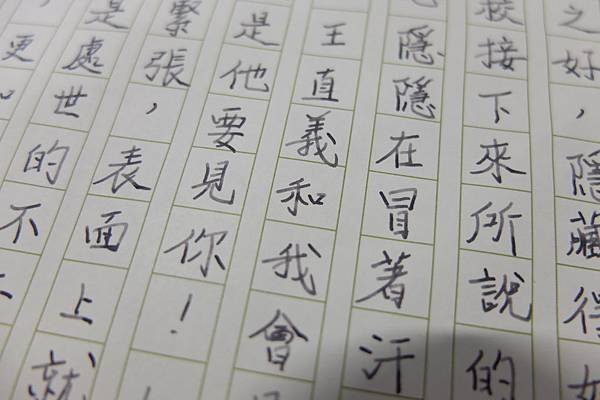 之好，隱藏得
接下來所說的
隱隱在冒著汗
王直義和我會
是他要見你！
緊張，表面上
是處世的
更和不